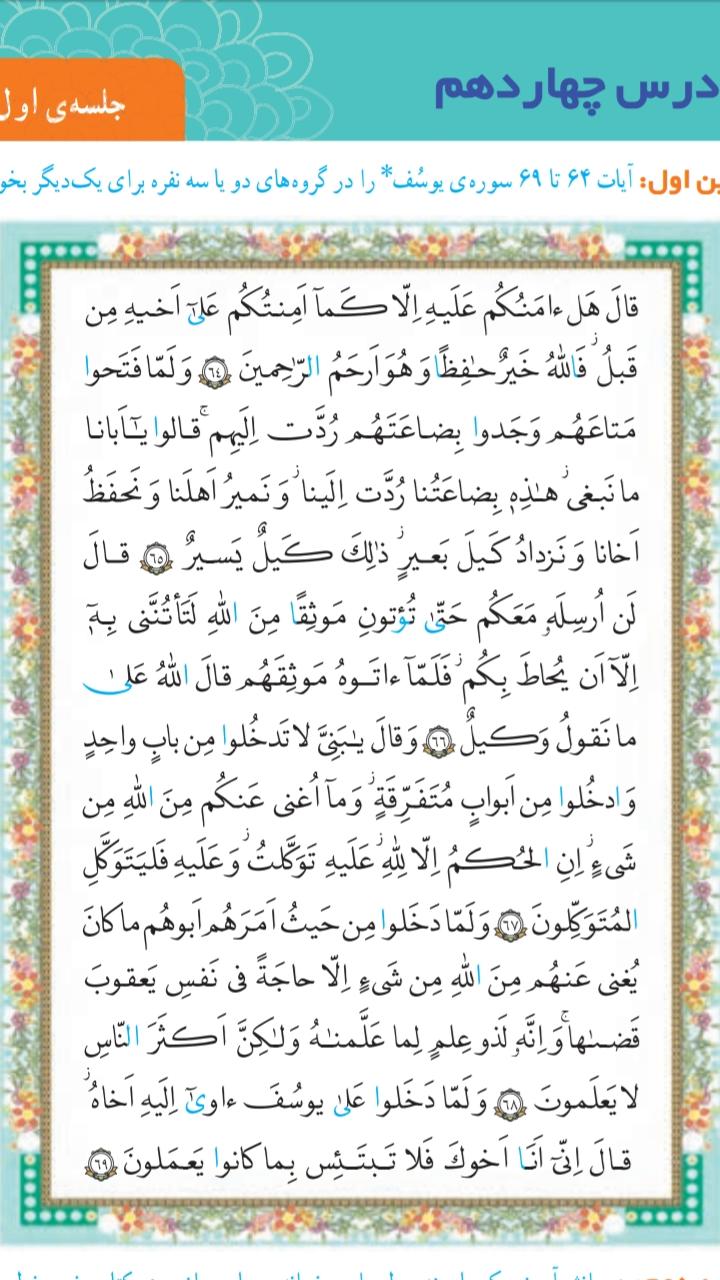 درس چهاردهم
جلسه‌ی اول
ین اول: آیات ۶۴ تا ۶۹ سوره‌ی یوسُف* را در گروه‌های دو یا سه نفره برای یک‌دیگر بخو
قالَ هَل ءامَنُكُم عَلَيهِ اِلّا كَمآ اَمِنتُكُم عَلىٰٓ اَخيهِ مِن
قَبلُ ۖ فَاللهُ خَيرٌ حـٰفِظًا وَ هُوَ اَرحَمُ الرّٰحِمينَ ﴿٦٤﴾ وَ لَمّا فَتَحوا
مَتاعَهُم وَجَدوا بِضاعَتَهُم رُدَّت اِلَيهِم ۚ قالوا يـٰٓاَبانا
ما نَبغى ۖ هـٰذِهٖ بِضاعَتُنا رُدَّت اِلَينا ۖ وَ نَميرُ اَهلَنا وَ نَحفَظُ
اَخانا وَ نَزدادُ كَيلَ بَعيرٍ ۖ ذٰلِكَ كَيلٌ يَسيرٌ ﴿٦٥﴾ قالَ
لَن اُرسِلَهٗ مَعَكُم حَتّىٰ تُؤتونِ مَوثِقًا مِنَ اللهِ لَتَأتُنَّنى بِهٖٓ
اِلّآ اَن يُحاطَ بِكُم ۖ فَلَمّآ ءاتَوهُ مَوثِقَهُم قالَ اللهُ عَلىٰ
ما نَقولُ وَكيلٌ ﴿٦٦﴾ وَ قالَ يـٰبَنِىَّ لا تَدخُلوا مِن بابٍ واحِدٍ
وَ ادخُلوا مِن اَبوابٍ مُتَفَرِّقَةٍ ۖ وَ مآ اُغنى عَنكُم مِنَ اللهِ مِن
شَىءٍ ۖ اِنِ الحُكمُ اِلّا لِلّٰهِ ۖ عَلَيهِ تَوَكَّلتُ ۖ وَ عَلَيهِ فَليَتَوَكَّلِ
المُتَوَكِّلونَ ﴿٦٧﴾ وَ لَمّا دَخَلوا مِن حَيثُ اَمَرَهُم اَبوهُم ما كانَ
يُغنى عَنهُم مِنَ اللهِ مِن شَىءٍ اِلّا حاجَةً فى نَفسِ يَعقوبَ
قَضـٰها ۚ وَ اِنَّهٗ لَذو عِلمٍ لِما عَلَّمنـٰهُ وَ لـٰكِنَّ اَكثَرَ النّاسِ
لا يَعلَمونَ ﴿٦٨﴾ وَ لَمّا دَخَلوا عَلىٰ يوسُفَ ءاوىٰٓ اِلَيهِ اَخاهُ ۖ
قالَ اِنّىٓ اَنَا اَخوكَ فَلا تَبتَئِس بِما كانوا يَعمَلونَ ﴿٦٩﴾